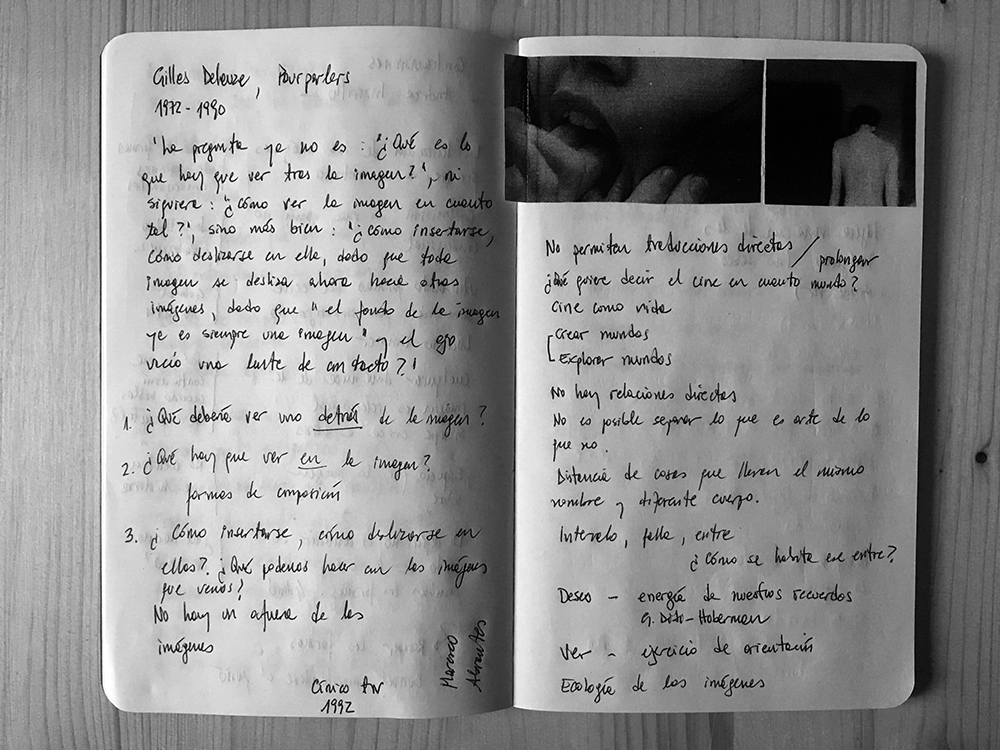 Gilles Deleuze, Pourparlers
1972 - 1990
'La pregunta ya no es: "¿Qué es lo
que hay que ver tras la imagen?", ni
siquiera: "¿cómo ver la imagen en cuanto
tal?", sino más bien: "¿cómo insertarse,
cómo deslizarse en ella, dado que toda
imagen se desliza ahora hacia otras
imágenes, dado que "el fondo de la imagen
ya es siempre una imagen" y el ojo
vacío una lente de contacto?'
1. ¿Qué debería ver uno detrás de la imagen?
2. ¿Qué hay que ver en la imagen?
formas de composición
3. ¿Cómo insertarse, cómo deslizarse en
ellas? ¿Qué podemos hacer con las imágenes
que vemos?
No hay un afuera de las
imágenes
1992
No permiten traducciones directas / prolongar
¿Qué quiere decir el cine en cuanto mundo?
Cine como vida
Crear mundos
Explorar mundos
No hay relaciones directas
No es posible separar lo que es arte de lo
que no.
Distancia de cosas que llevan el mismo
nombre y diferente cuerpo.
Intervalo, falla, entre
¿Cómo se habita ese entre?
Deseo - energía de nuestros recuerdos
G. Didi-Huberman
Ver - ejercicio de orientación
Ecología de las imágenes